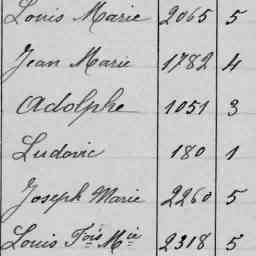 Louis Marie 2065 5
Jean Marie 1782 4
Adolphe 1051 3
Ludovic 180 1
Joseph Marie 2260 5
Louis Fois Mie 2318 5